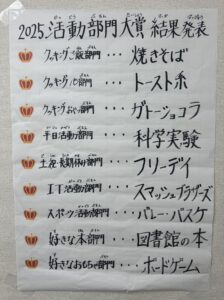 2025.活動部門大賞 結果発表
クッキングご飯部門・・・焼きそば
クッキングパン部門・・・トースト系
クッキングおやつ部門・・・ガトーショコラ
平日活動部門・・・科学実験
土祝・長期休み部門・・・フリーデイ
IT活動部門・・・スマッシュブラザーズ
スポーツ活動部門・・・バレー・バスケ
好きな本部門・・・図書館の本
好きなおもちゃ部門・・・ボードゲーム